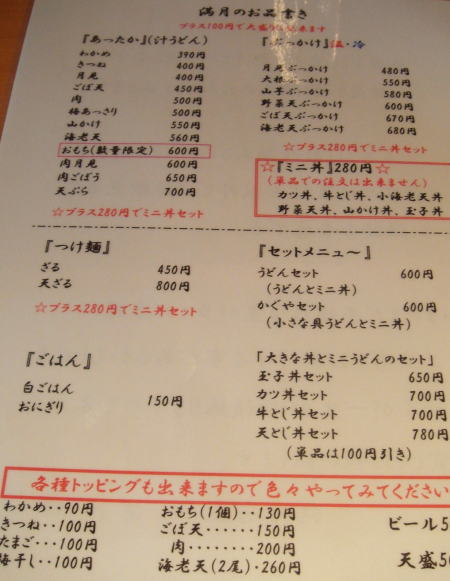 満月のお品書き
プラス100円で大盛り出来ます
『あったか』(汁うどん)
わかめ 390円
きつね 400円
月見 400円
ごぼ天 450円
肉 500円
梅あっさり 500円
山かけ 550円
海老天 560円
おもち(数量限定) 600円
肉月見 600円
肉ごぼう 650円
天ぷら 700円
☆プラス280円でミニ丼セット
『ぶっかけ』温・冷
月見ぶっかけ 480円
大根ぶっかけ 550円
山芋ぶっかけ 580円
野菜天ぶっかけ 600円
ごぼ天ぶっかけ 670円
海老天ぶっかけ 680円
☆プラス280円でミニ丼セット
☆『ミニ丼』280円☆
(単品での注文は出来ません)
カツ丼、牛とじ丼、小海老天丼
野菜天丼、山かけ丼、玉子丼
『つけ麺』
ざる 450円
天ざる 800円
☆プラス280円でミニ丼セット
『セットメニュ〜』
うどんセット 600円
(うどんとミニ丼)
かぐやセット 600円
(小さな具うどんとミニ丼)
『ごはん』
白ごはん
おにぎり 150円
「大きな丼とミニうどんのセット」
玉子丼セット 650円
カツ丼セット 700円
牛とじ丼セット 700円
天とじ丼セット 780円
(単品は100円引き)
各種トッピングも出来ますので色々やってみてください
わかめ・・90円
きつね・・100円
たまご・・・100円
梅干し・・・100円
おもち(1個)・・130円
ごぼ天・・・・・・150円
肉・・・・・・・200円
海老天(2尾)・260円
ビール
天盛